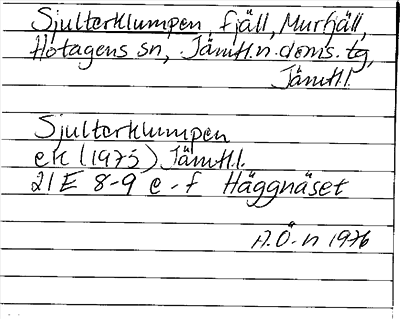 Sjulterklumpen, fjäll, Murfjäll,
Hotagens sn, Jämtl.n.doms. tg,
Jämtl.
Sjulterklumpen
ek (1975) Jämtl.
21E 8-9 e-f Häggnäset
A.Ö-n 1976